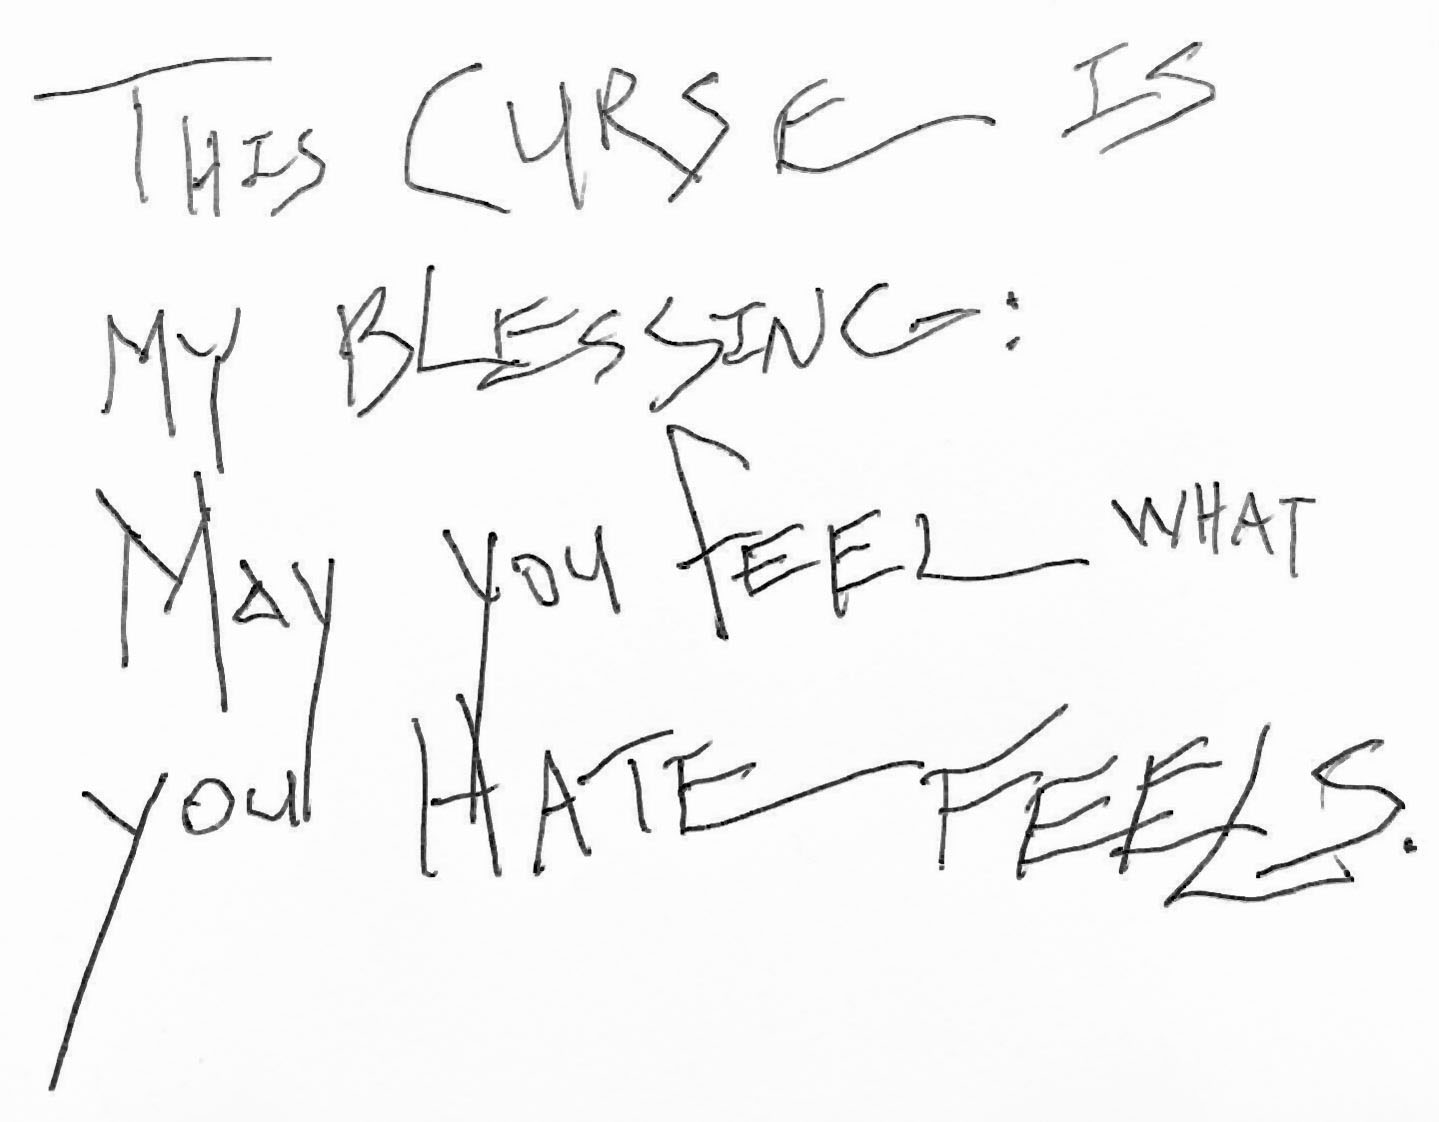 THIS CURSE IS
MY BLESSING:
MAY YOU FEEL WHAT
YOU HATE FEELS.